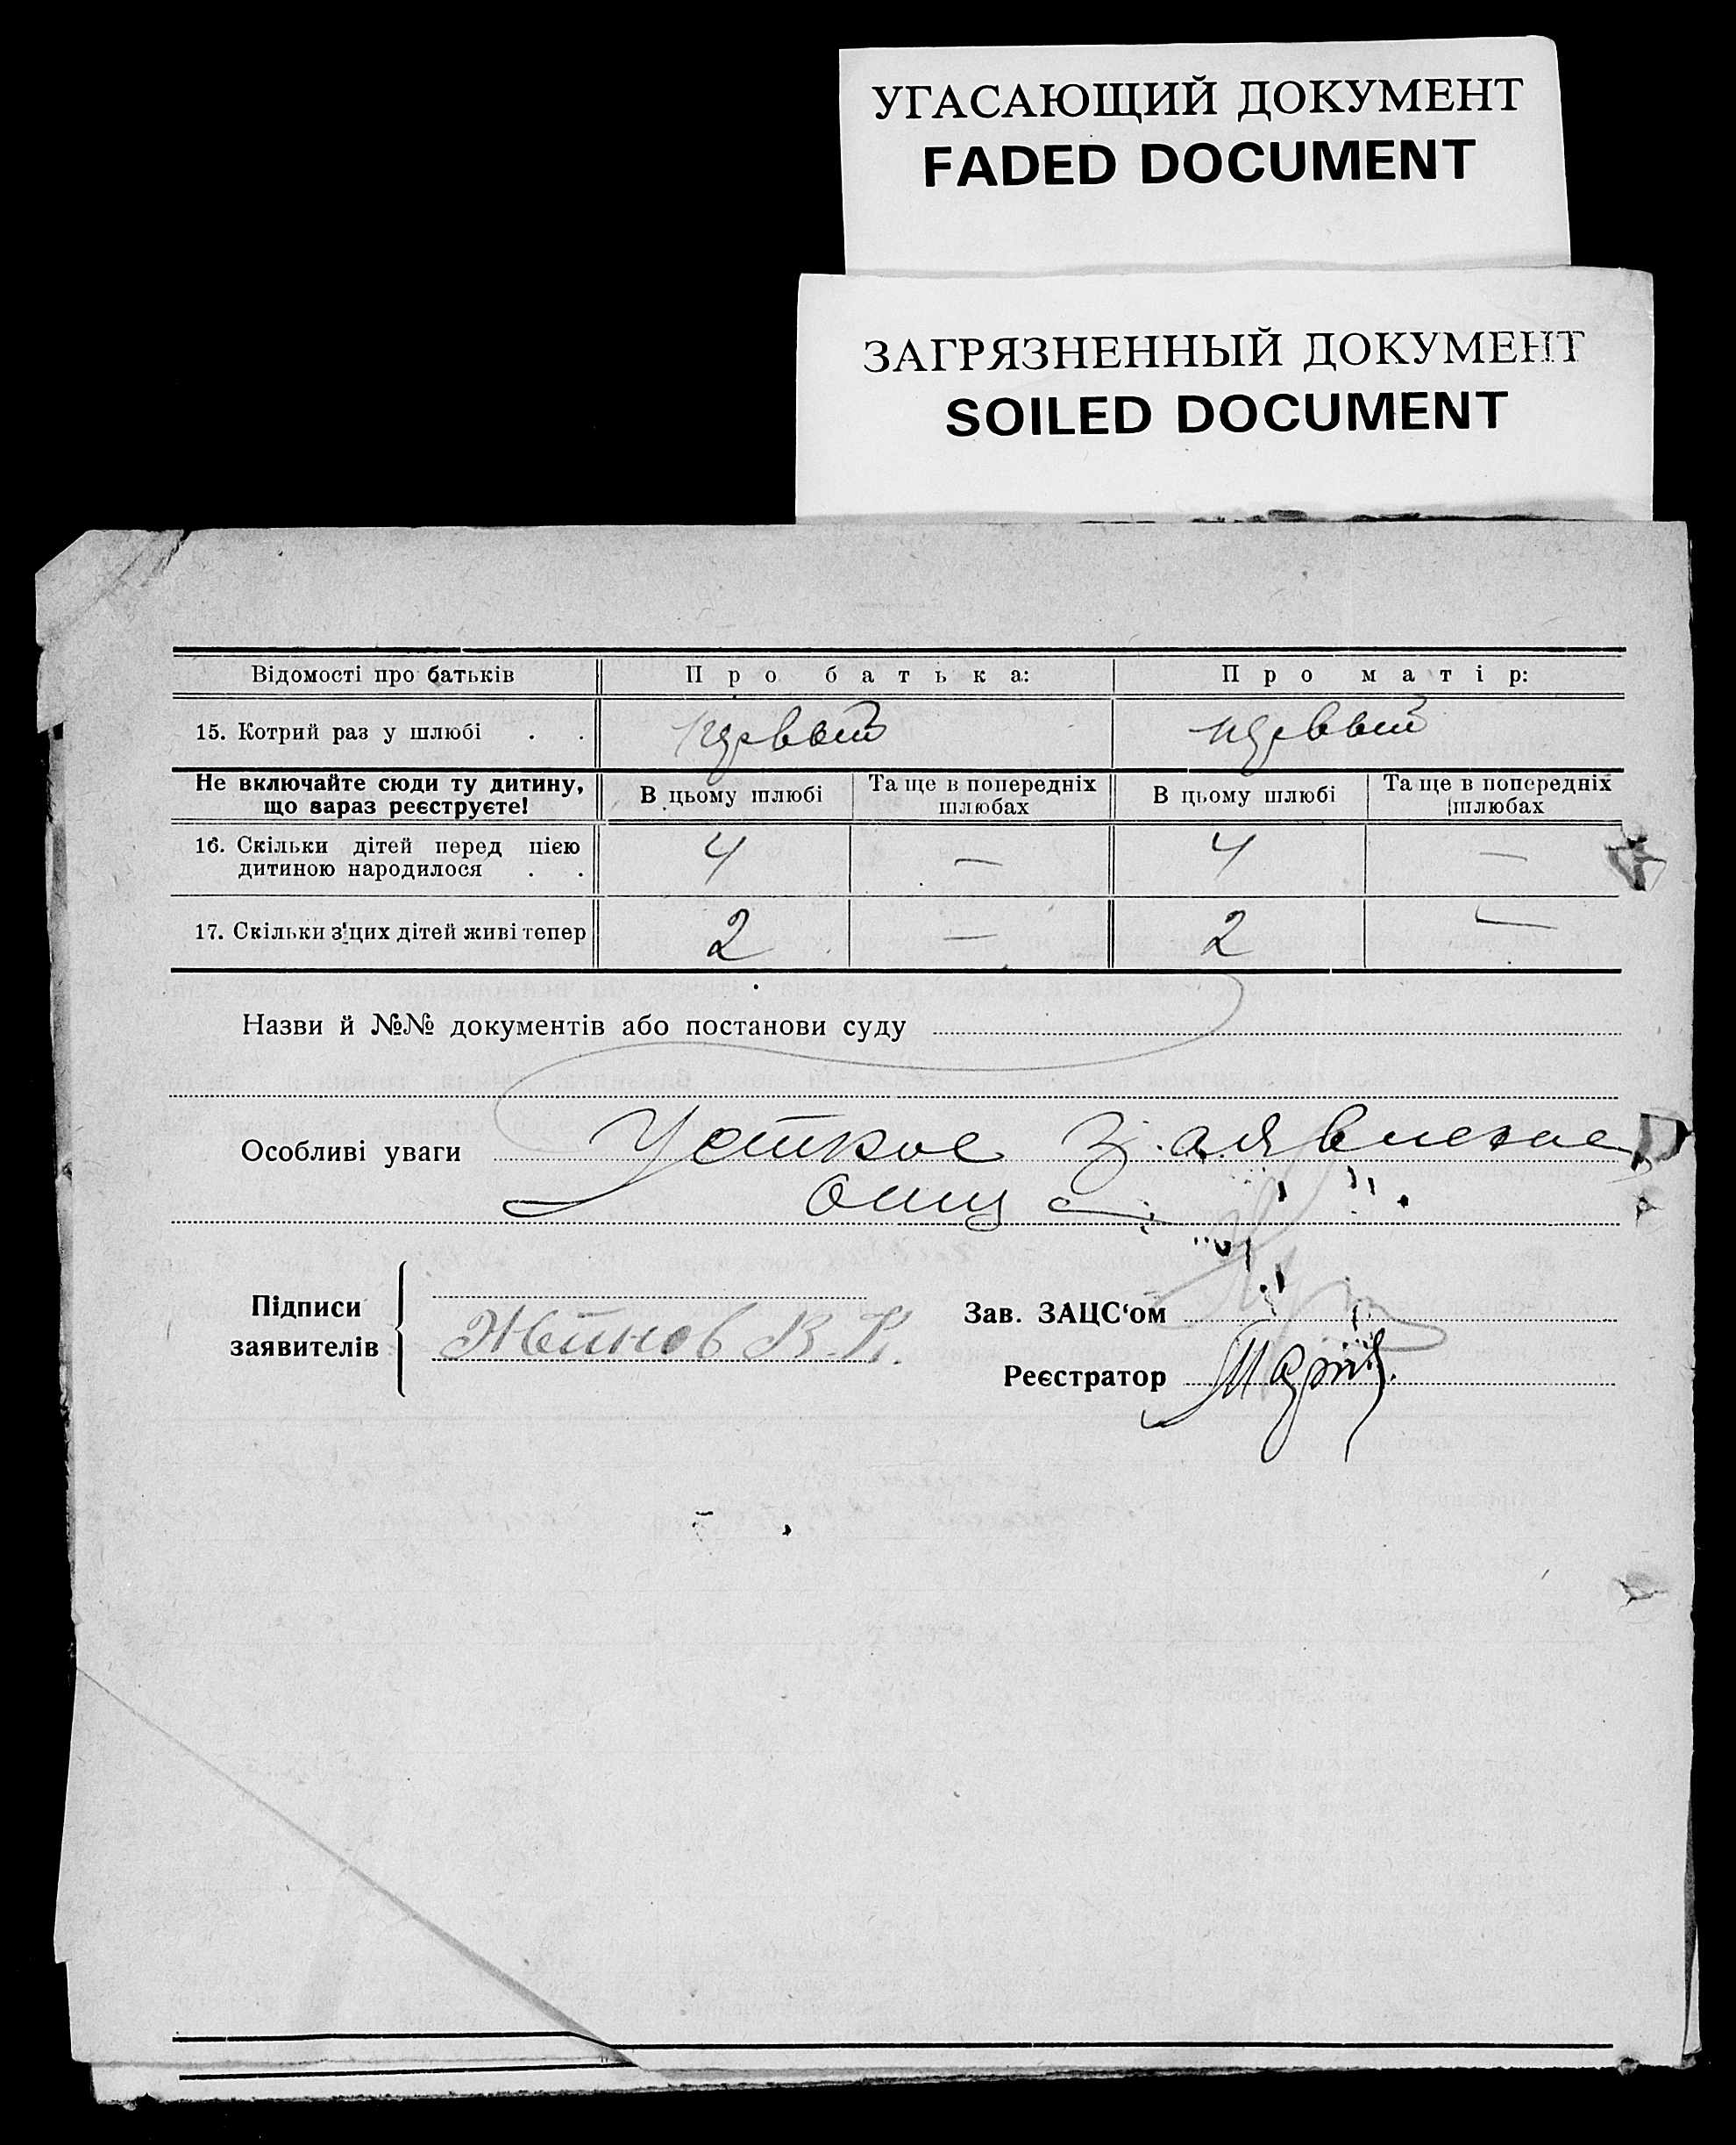 УГАСАЮЩИЙ ДОКУМЕНТ
FADED DOCUMENT
ЗАГРЯЗНЕННЫЙ ДОКУМЕНТ
SOILED DOCUMENT
Відомості про батьків Про батька: Про матір:
15. Котрий раз у шлюбі . . первый первый
Не включайте сюди ту дитину, що зараз реєструєте! В цьому шлюбі Та ще в попередніх шлюбах В цьому шлюбі Та ще в попередніх шлюбах
16. Скільки дітей перед цією дитиною народилося . . 4 — 4 —
17. Скільки з цих дітей живі тепер 2 — 2 —
Назви й №№ документів або постанови суду
Особливі уваги Устное заявление
отца
Підписи заявителів
Зав. ЗАЦС‘ом
Реєстратор